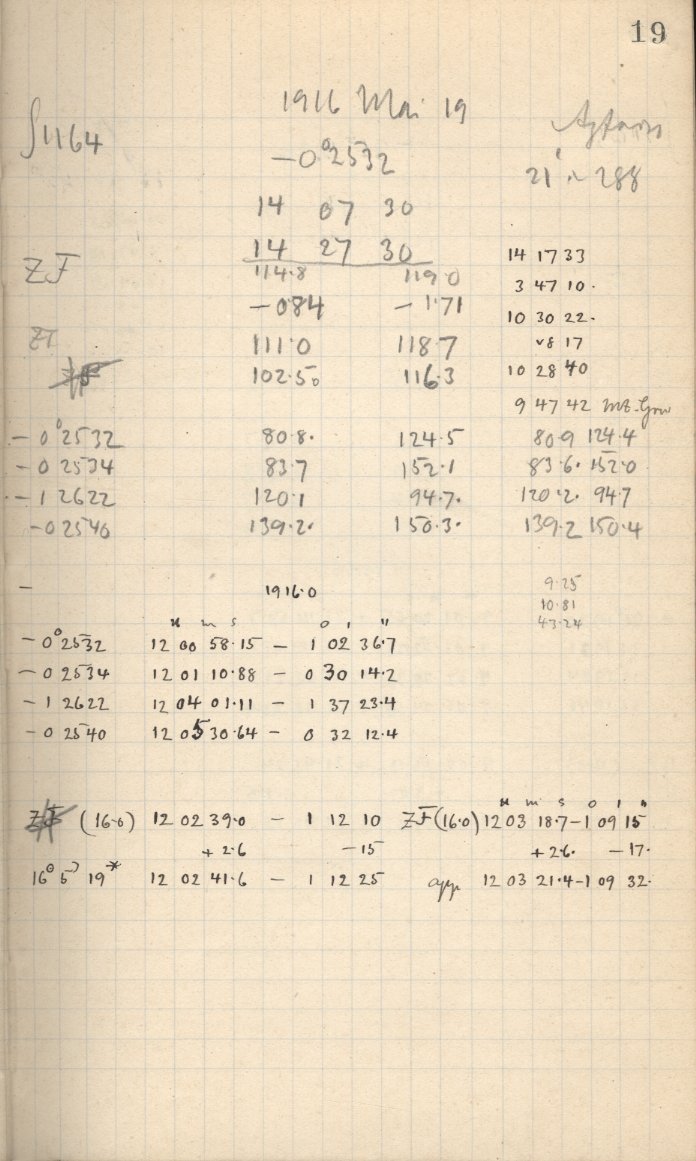 19
1916 Mai 19
∫1164
−0°2532
21' ~ 288
14 07 30
14 27 30
14 17 33
ZF 114.8 119.0
3 47 10.
−084 −1.71
10 30 22.
111.0 118.7
8 17
102.50 116.3
10 28 40
9 47 42 Mt. Grw
−0°2532 80.8. 124.5 80.9 124.4
−0 2534 83.7 152.1 83.6. 152.0
−1 2622 120.1 94.7. 120.2. 94.7
−0 2540 139.2. 150.3. 139.2 150.4
− 1916.0 9.25
10.81
43.24
H m s ° ' "
−0°2532 12 00 58.15 − 1 02 36.7
−0 2534 12 01 10.88 − 0 30 14.2
−1 2622 12 04 01.11 − 1 37 23.4
−0 2540 12 05 30.64 − 0 32 12.4
H m s ° ' "
ZF (16.0) 12 02 39.0 − 1 12 10 ZF (16.0) 12 03 18.7 −1 09 15
+2.6 −15 +2.6. −17.
12 02 41.6 − 1 12 25 app 12 03 21.4 −1 09 32.